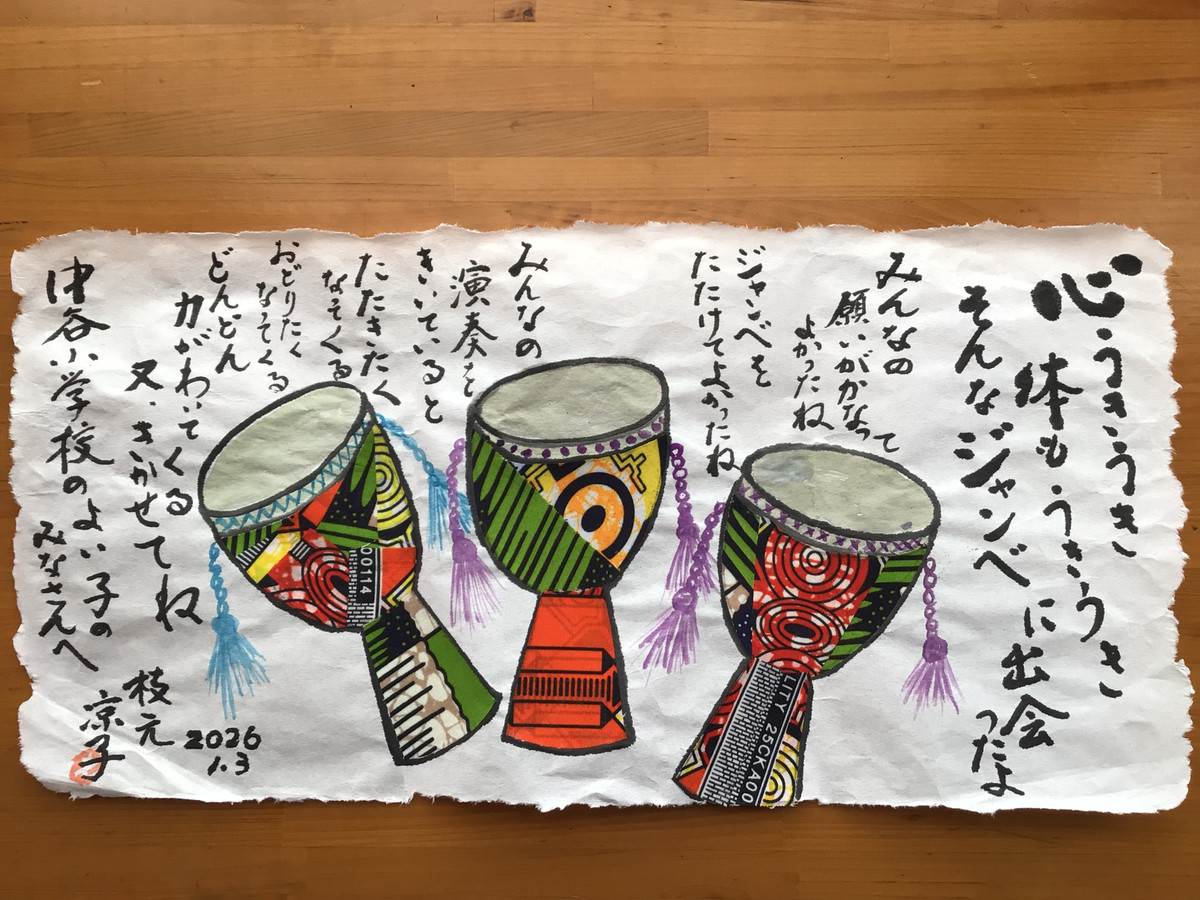 心うきうき
体もうきうき
そんなジャンベに出会
ったよ
みんなの
願いがかなって
よかったね
ジャンベを
たたけてよかったね
みんなの
演奏を
きいていると
たたきたく
なってくる
おどりたく
なってくる
どんどん
力がわいてくる
又、きかせてね
中谷小学校のよい子の
みなさんへ
枝元
涼子
2026
1.3
00114
LITY 25CKA00